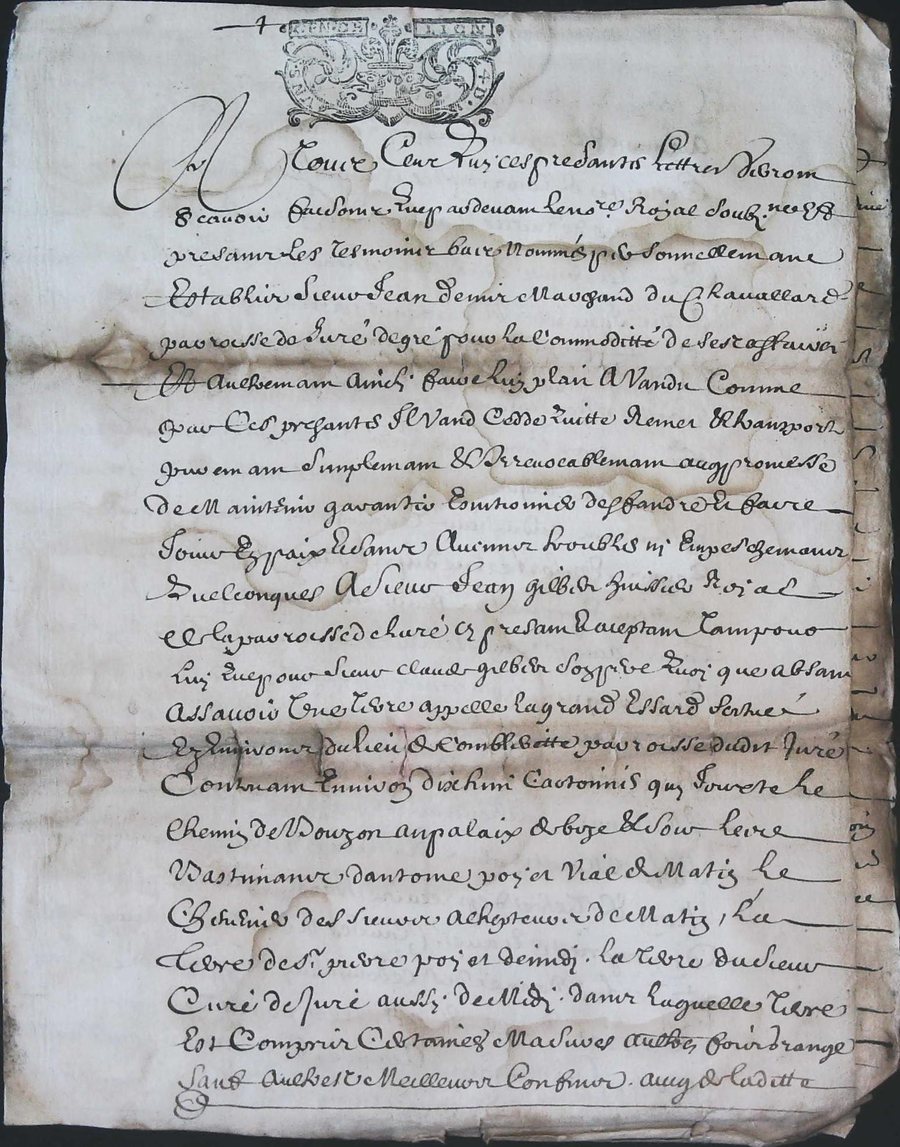 GEN DE LION
UN S. 4 D.
A Tous Ceux Quy ces presantes Lettres Verront
Scavoir faisons Que pardevant le no.re Royal soubz.ne Et
presant Les tesmoins bas Nommés personnellemant
Establis sieur Jean Marchand du Chavallard
parroisse de Juré de gré pour La Commoditté de ses affaires
Et Aultremant Ainsi faire Luy plait A Vandu Comme
par Ces presantes Il Vand Cedde Quitte Remet & transporte
puremant simplemant & Irrevocablemant avec promesse
De Maintenir garantir deffandre Et faire
Jouir En paix Et sans Aucuns troubles ny Empeschemans
Quelconques A sieur Jean gilbert huissier Royal
de la parroisse de Juré cy presant & aceptant Tampour
Luy Que pour sieur claude gilbert son frere Quoy que absant
Assavoir Une Terre appellé La grand Essard scitué
Es Environs du Lieu de Comblevitte parroisse dudit Juré
Contenant Environ dix huit Cartonnés quy Jouxte Le
Chemin de au palaix de boze & soir Les
Bastimans dantome poyet Vial de Matin Le
des sieurs de Matin, La
terre de S.r pierre poyet de midy. La terre du sieur
Curé de Juré aussy. de Midy. dans Laquelle terre
Est Compris Certaines Masures aultres fois grange
Sauf Aultres Meilleurs Confins. avec de Laditte